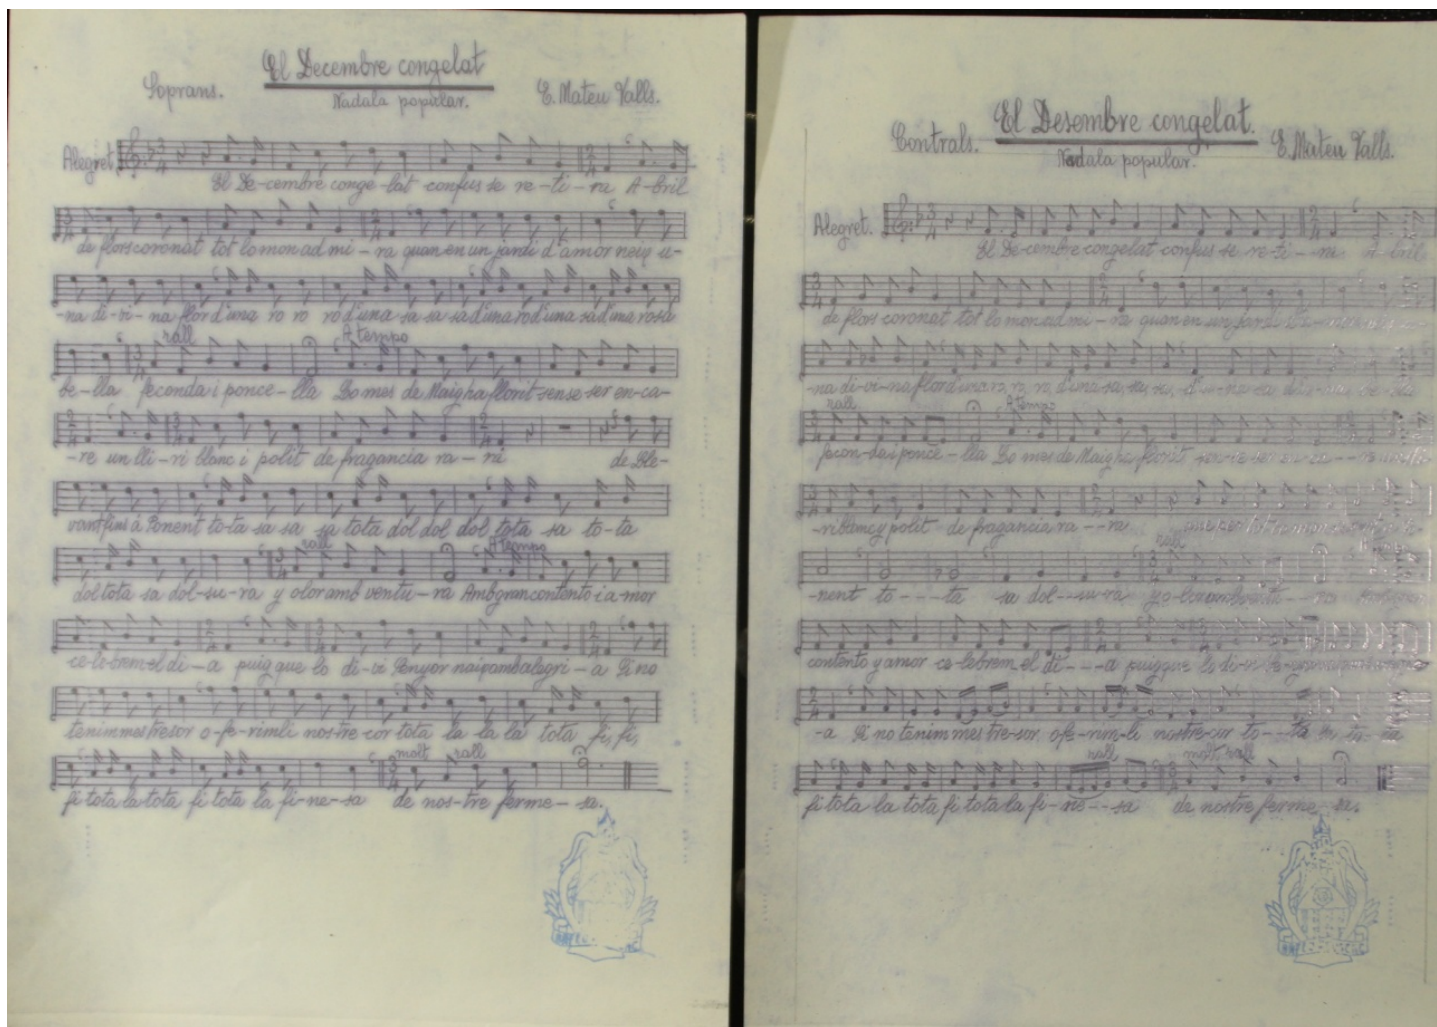 El Decembre congelat
Soprans.
Nadala popular.
E. Mateu Valls.
Alegret.
El De-cembre conge-lat confus se re-ti-ra A-bril
de flors coronat tot lo mon ad mi-ra quan en un jardi d'amor neix u-
-na di-vi-na flor d'una ro ro ro d'una sa sa sa d'una ro d'una sa d'una rosa
rall A tempo
be-lla feconda i ponce-lla Lo mes de Maig ha florit sense ser en-ca-
-re un lli-ri blanc i polit de fragancia ra-ra de Lle-
vant fins á Ponent to-ta sa sa sa tota dol dol dol tota sa to-ta
rall A tempo
dol tota sa dol-su-ra y olor amb ventu-ra Amb gran contento i a-mor
ce-le-brem el di-a puig que lo di-vi Senyor naix amb alegri-a Si no
tenim mes tresor o-fe-rim li nos-tre cor tota la la la tota fi, fi,
molt rall
fi tota la tota fi tota la fi-ne-sa de nos-tre ferme-sa.
El Desembre congelat.
Contrals.
Nadala popular.
E. Mateu Valls.
Alegret.
El De-cembre congelat confus se re-ti--ra A-bril
de flors coronat tot lo mon ad mi-ra quan en un jardi
-na di-vi-na flor d'una ro, ro, ro, d'una sa, sa, sa,
rall A tempo
ponce-lla Lo mes de Maig ha florit
-ri blanc y polit de fragancia ra--ra
rall
-nent to---ta sa dol--su-ra y o-lor
contento y amor ce-lebrem el di---a puig que lo di-vi
-a Si no tenim mes tre-sor ofe-rim-li nostre cor to--ta
rall molt rall
fi tota la tota fi tota la fi-ne--sa de nostre ferme-sa.